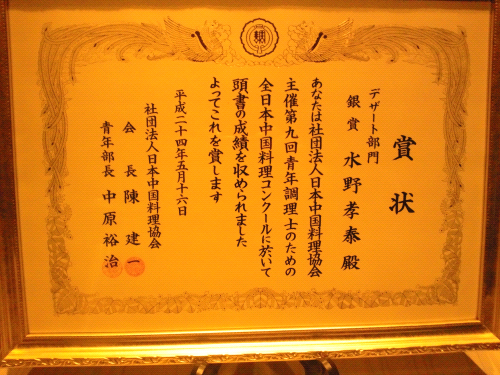 賞状
デザート部門
銀賞 水野孝泰殿
あなたは社団法人日本中国料理協会
主催第九回青年調理士のための
全日本中国料理コンクールに於いて
頭書の成績を収められました
よってこれを賞します
平成二十四年五月十六日
社団法人日本中国料理協会
会長 陳建一
青年部長 中原裕治